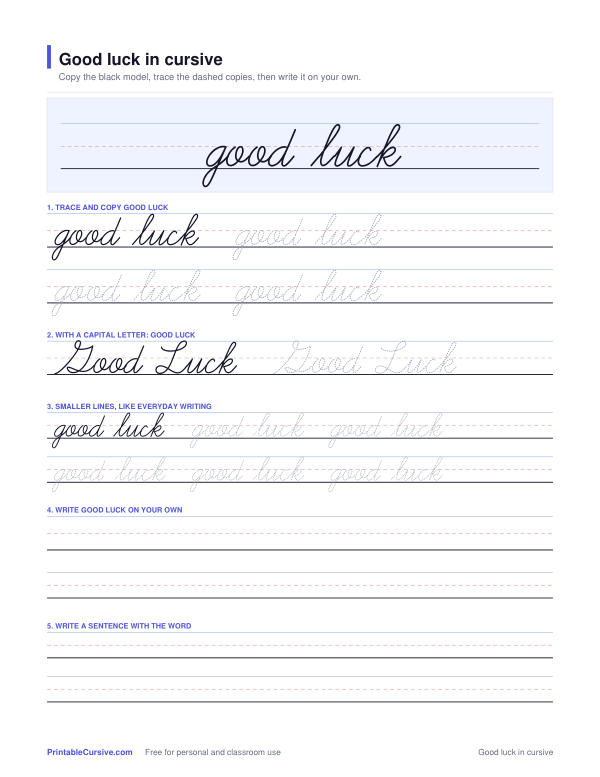 Good luck in cursive
Copy the black model, trace the dashed copies, then write it on your own.
good luck
1. TRACE AND COPY GOOD LUCK
good luck good luck
good luck good luck
2. WITH A CAPITAL LETTER: GOOD LUCK
Good Luck Good Luck
3. SMALLER LINES, LIKE EVERYDAY WRITING
good luck good luck good luck
good luck good luck good luck
4. WRITE GOOD LUCK ON YOUR OWN
5. WRITE A SENTENCE WITH THE WORD
PrintableCursive.com Free for personal and classroom use Good luck in cursive